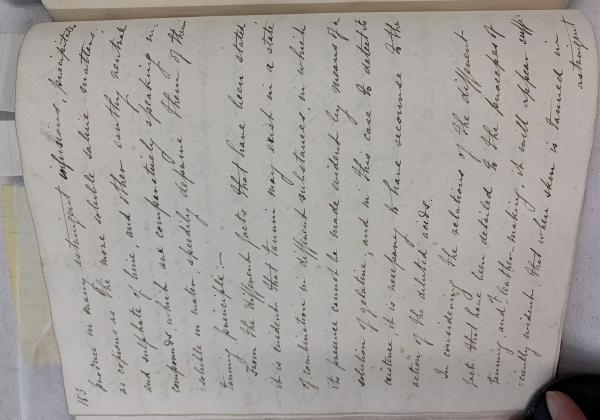 183
produce in many astringent infusions, precipitates
as copious as the more soluble saline matters;
and sulphate of lime, and other earthy neutral
compounds which are comparatively speaking in-
soluble in water, speedily deprave them of their
tanning principle.—
From the different facts that have been stated,
it is evident that tannin may exist in a state
of combination in different substances, in which
its presence cannot be made evident by means of a
solution of gelatine; and in this case to detect its
existence, it is necessary to have recourse to the
action of the diluted acids.
In considering the relations of the different
facts that have been detailed to the processes of
tanning and leather-making, it will appear suffi-
ciently evident, that when skin is tanned in
astringent